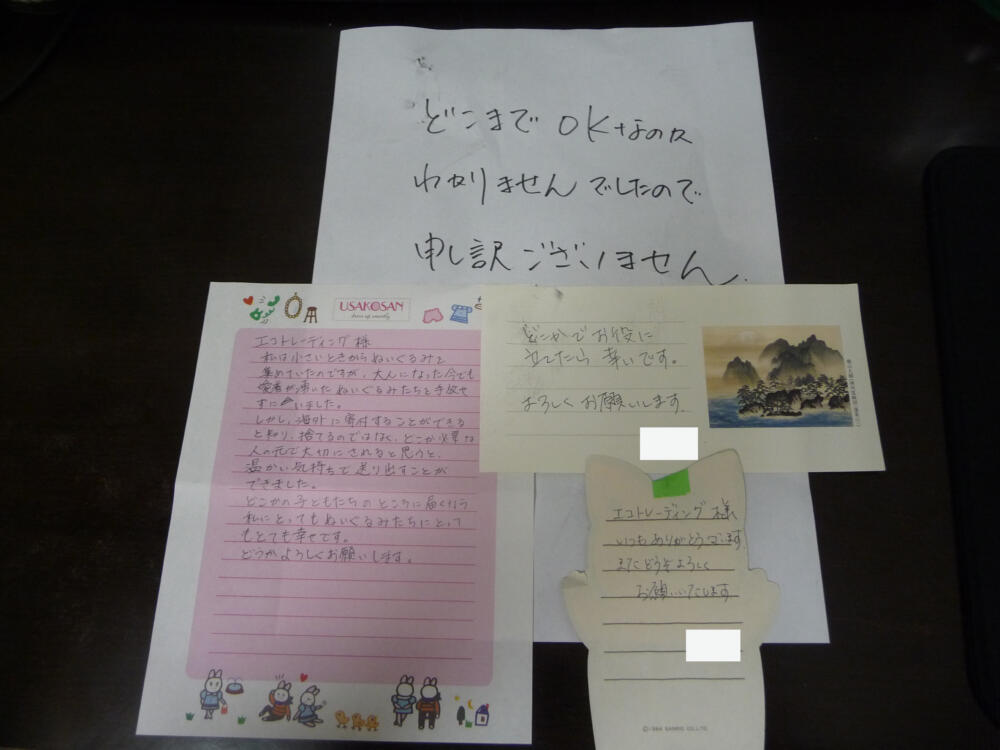 どこまで OKなのか
わかりませんでしたので
申し訳ございません.
USAKOSAN
エコトレーディング様
私は小さいときからぬいぐるみを
集めていたのですが、大人になった今でも
愛着が湧いたぬいぐるみたちを手放せ
ずにいました。
しかし、海外に寄付することができる
と知り、捨てるのではなく、どこか必要な
人の元で大切にされると思うと、
温かい気持ちで送り出すことが
できました。
どこかの子どもたちのところに届くなら
私にとってもぬいぐるみたちにとって
もとても幸せです。
どうかよろしくお願いします。
どこかでお役に
立てたら幸いです。
よろしくお願いします。
エコトレーディング様
いつもありがとうございます。
またどうぞよろしく
お願いいたします